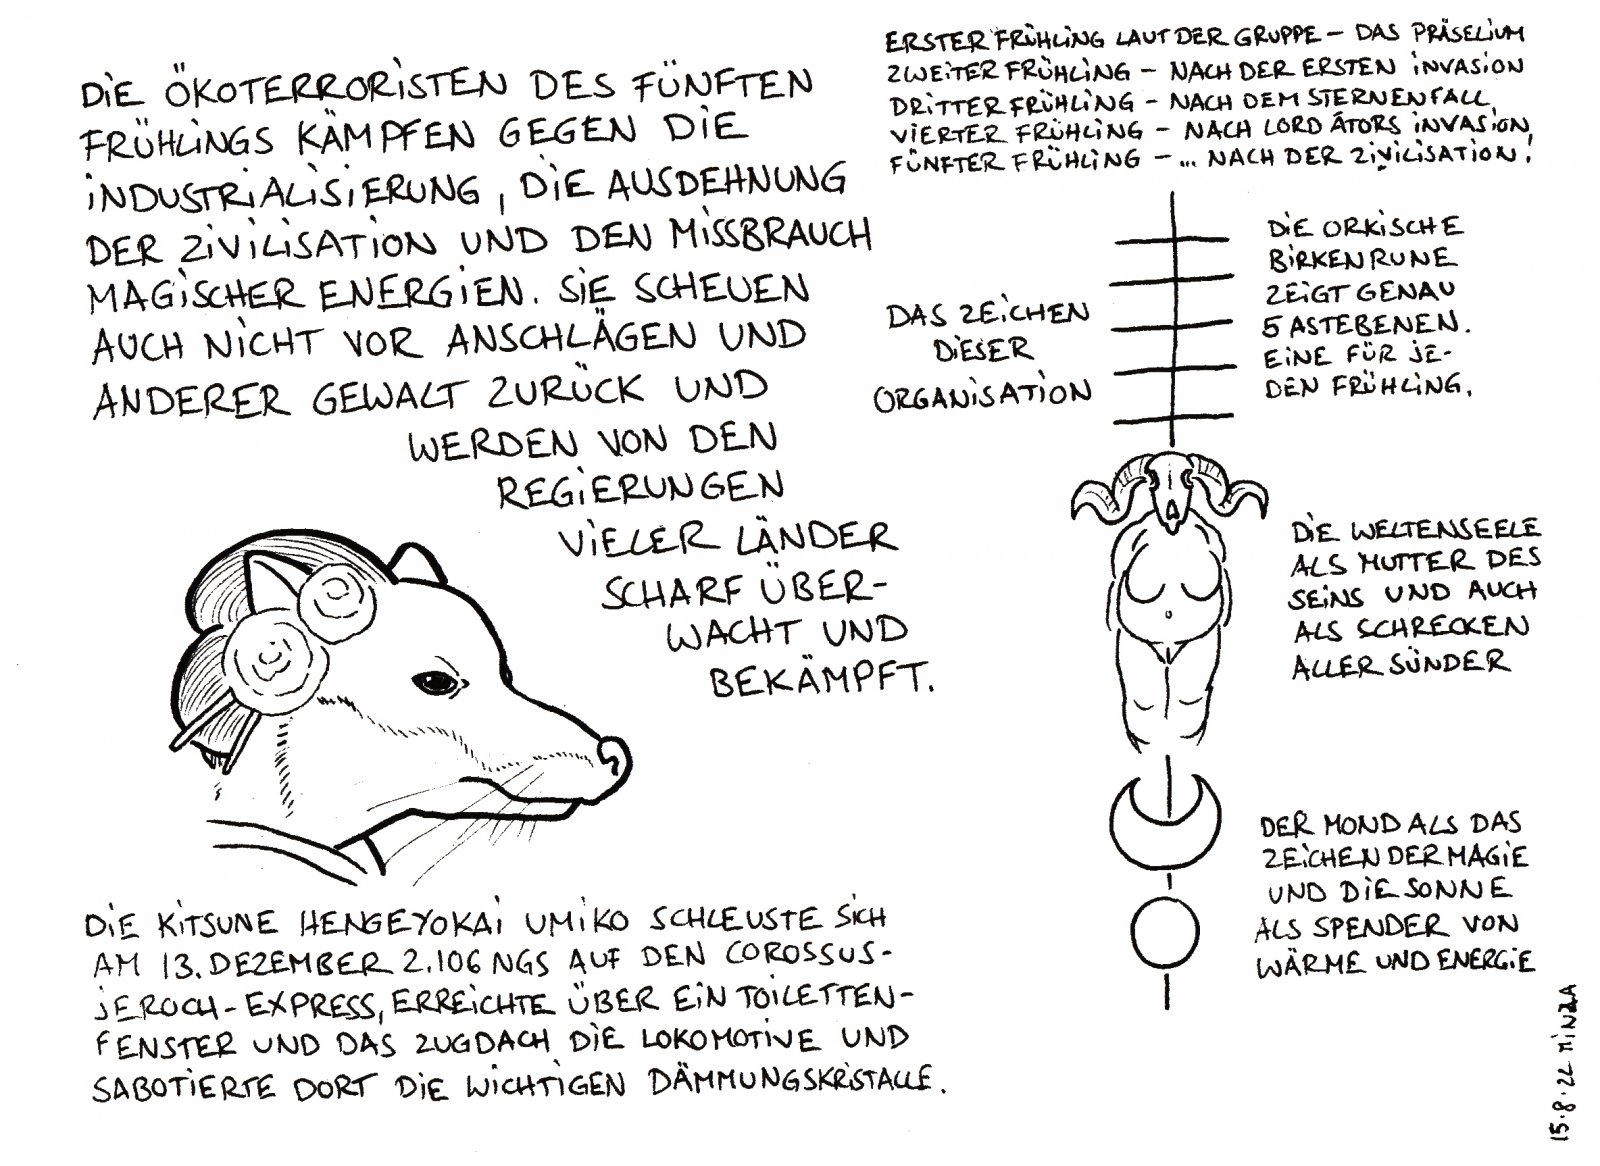 DIE ÖKOTERRORISTEN DES FÜNFTEN
FRÜHLINGS KÄMPFEN GEGEN DIE
INDUSTRIALISIERUNG, DIE AUSDEHNUNG
DER ZIVILISATION UND DEN MISSBRAUCH
MAGISCHER ENERGIEN. SIE SCHEUEN
AUCH NICHT VOR ANSCHLÄGEN UND
ANDERER GEWALT ZURÜCK UND
WERDEN VON DEN
REGIERUNGEN
VIELER LÄNDER
SCHARF ÜBER-
WACHT UND
BEKÄMPFT.
ERSTER FRÜHLING LAUT DER GRUPPE – DAS PRÄSELIUM
ZWEITER FRÜHLING – NACH DER ERSTEN INVASION
DRITTER FRÜHLING – NACH DEM STERNENFALL,
VIERTER FRÜHLING – NACH LORD ÁTORS INVASION,
FÜNFTER FRÜHLING – ... NACH DER ZIVILISATION!
DAS ZEICHEN
DIESER
ORGANISATION
DIE ORKISCHE
BIRKENRUNE
ZEIGT GENAU
5 ASTEBENEN.
EINE FÜR JE-
DEN FRÜHLING.
DIE WELTENSEELE
ALS MUTTER DES
SEINS UND AUCH
ALS SCHRECKEN
ALLER SÜNDER
DER MOND ALS DAS
ZEICHEN DER MAGIE
UND DIE SONNE
ALS SPENDER VON
WÄRME UND ENERGIE
DIE KITSUNE HENGEYOKAI UMIKO SCHLEUSTE SICH
AM 13. DEZEMBER 2.106 NGS AUF DEN COROSSUS-
JEROCH-EXPRESS, ERREICHTE ÜBER EIN TOILETTEN-
FENSTER UND DAS ZUGDACH DIE LOKOMOTIVE UND
SABOTIERTE DORT DIE WICHTIGEN DÄMMUNGSKRISTALLE.
15.8.22 MINZA